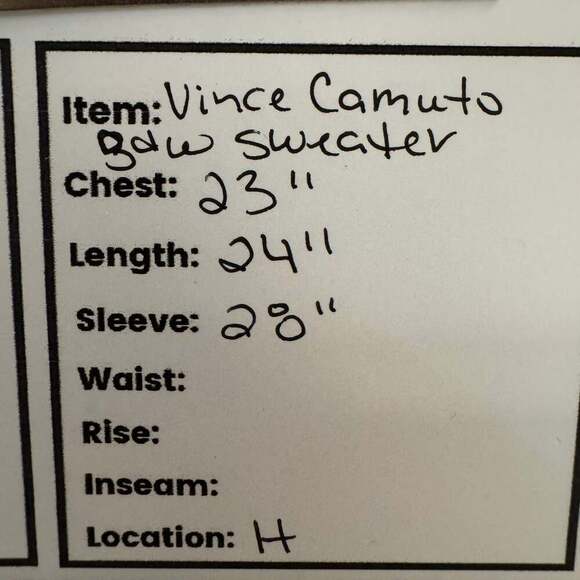 Item: Vince Camuto
b&w sweater
Chest: 23"
Length: 24"
Sleeve: 28"
Waist:
Rise:
Inseam:
Location: H